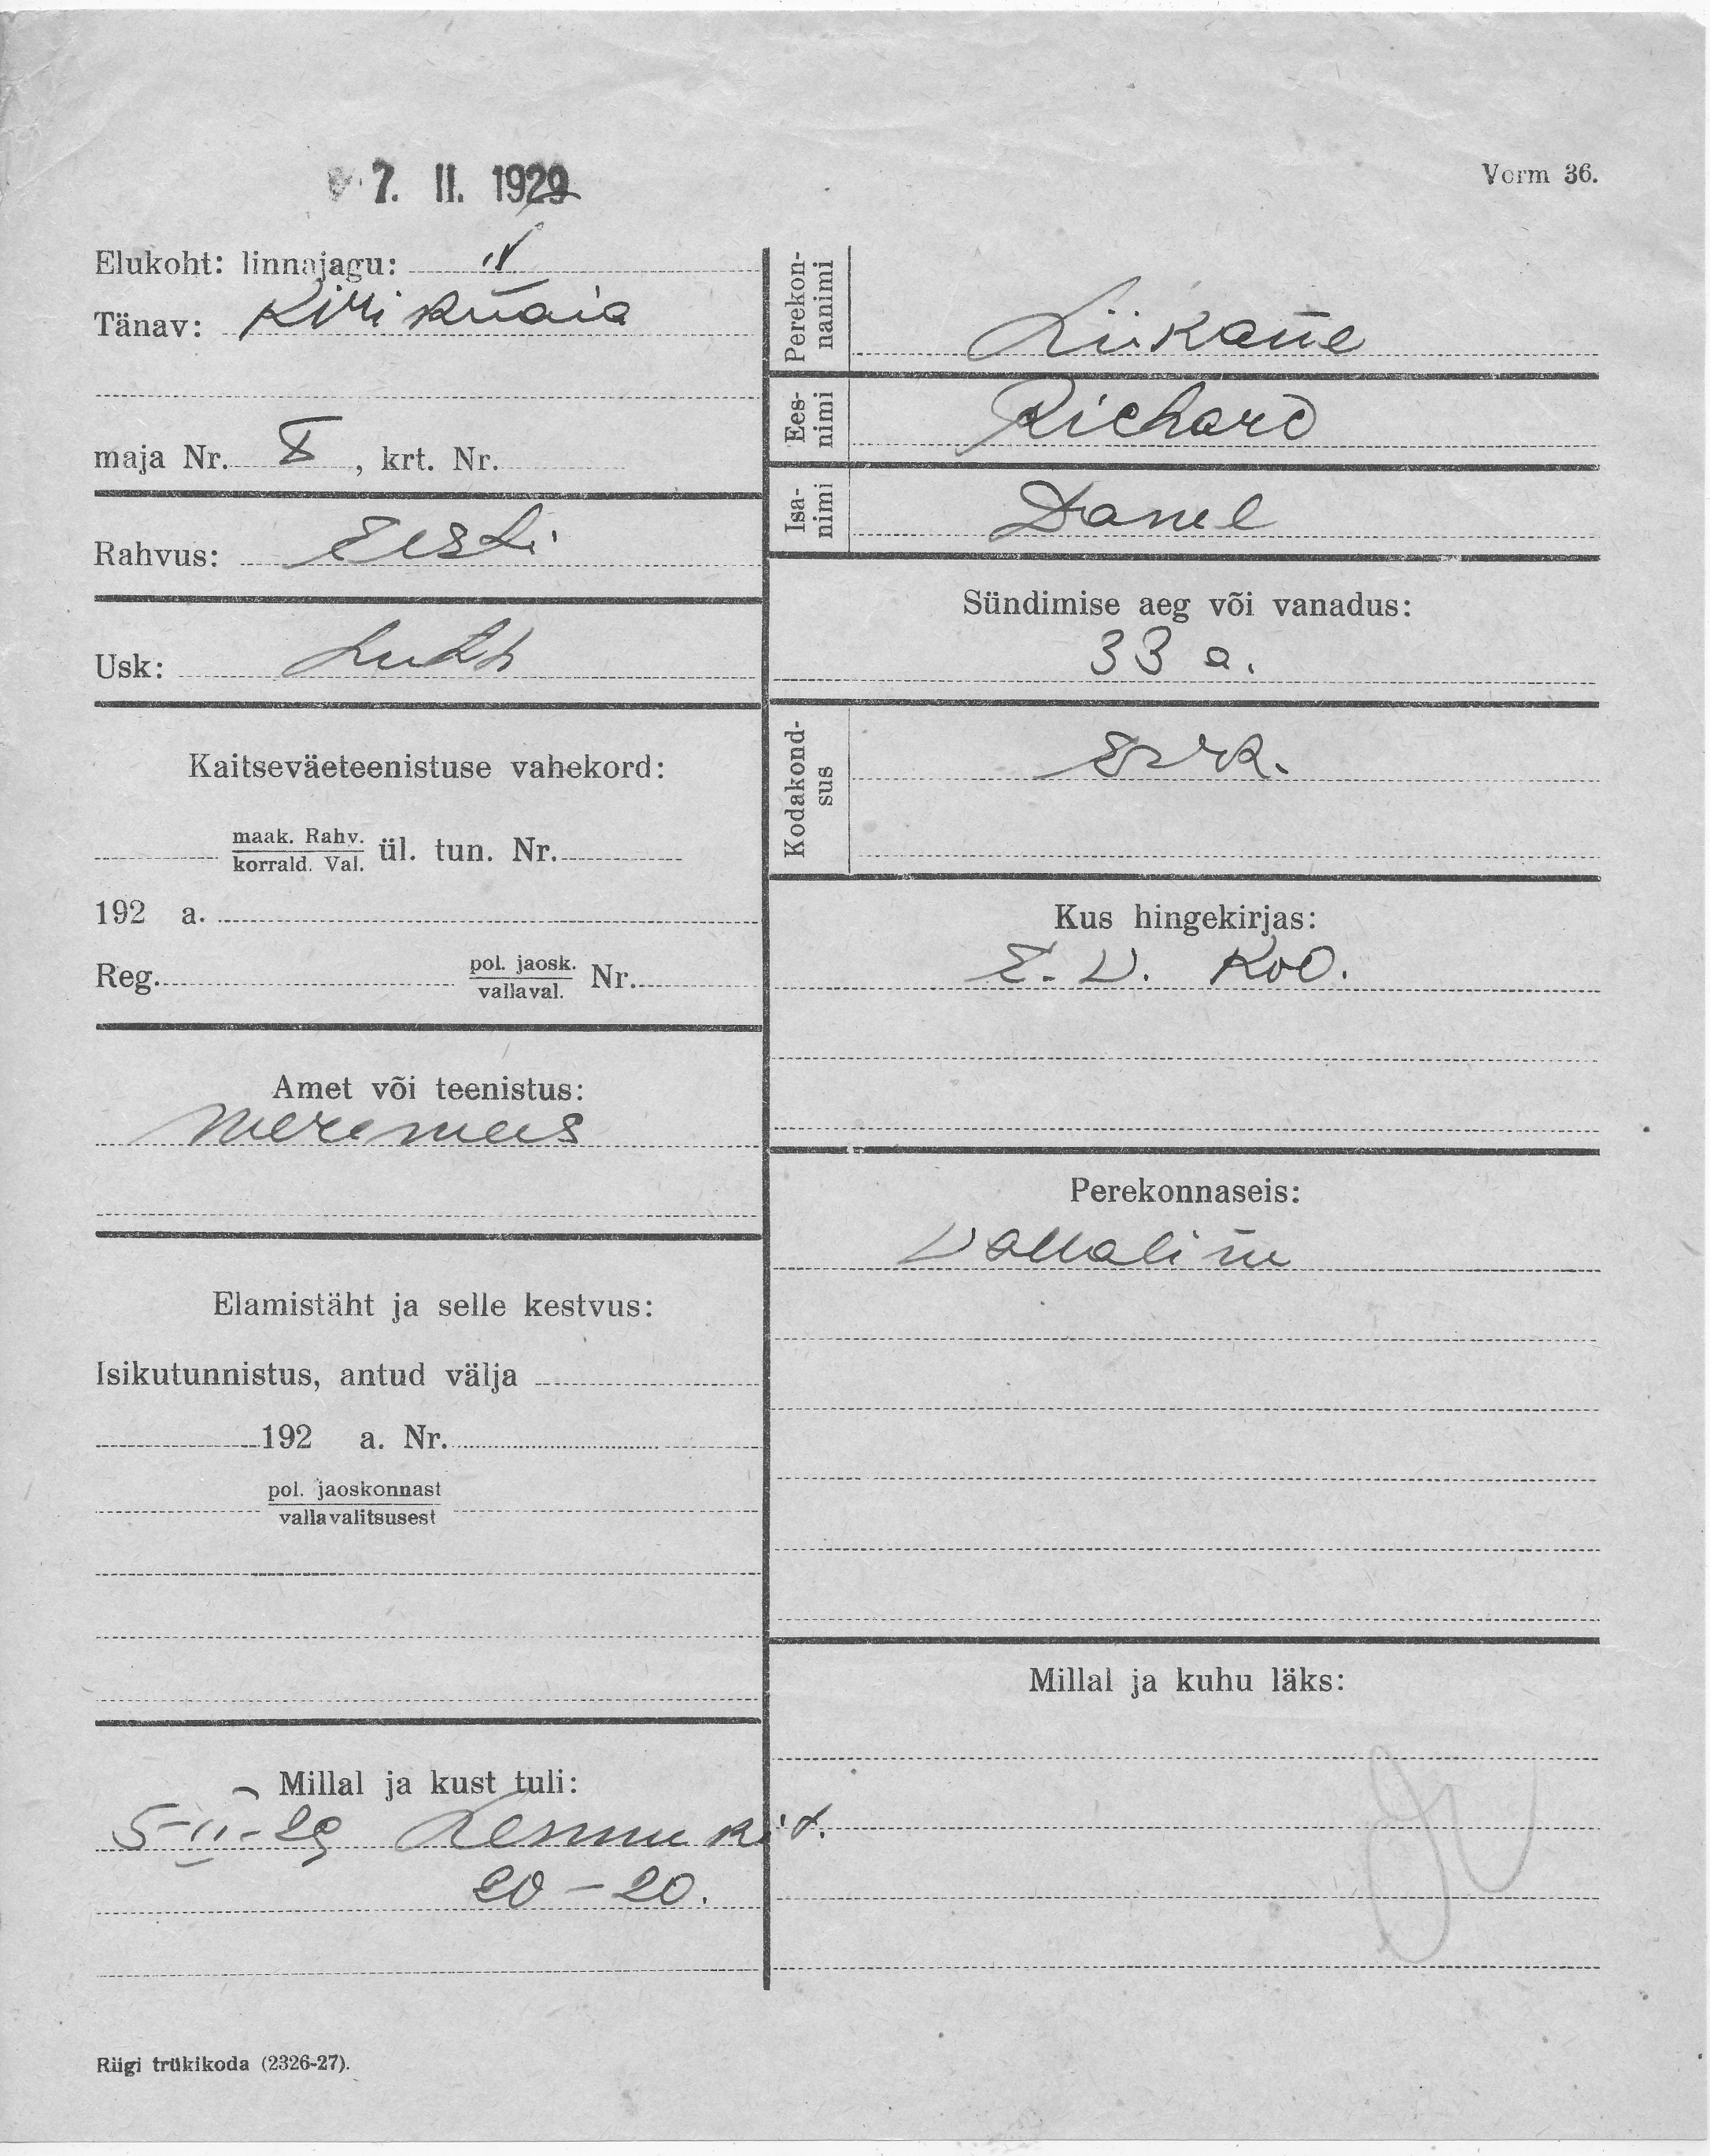 7. II. 1929
Vorm 36.
Elukoht: linnajagu: IV
Tänav: Kirikuaia
maja Nr. X, krt. Nr.
Rahvus: Eesti
Usk: Luth
Kaitseväeteenistuse vahekord:
maak. Rahv.
korrald. Val. ül. tun. Nr.
192 a.
Reg. pol. jaosk.
vallaval. Nr.
Amet või teenistus:
meremees
Elamistäht ja selle kestvus:
Isikutunnistus, antud välja
192 a. Nr.
pol. jaoskonnast
vallavalitsusest
Millal ja kust tuli:
5-II-29
20-20.
Riigi trükikoda (2326-27).
Perekon-
nanimi Liikane
Ees-
nimi Richard
Isa-
nimi Danel
Sündimise aeg või vanadus:
33 a.
Kodakond-
sus
Kus hingekirjas:
E. V. Kod.
Perekonnaseis:
Vallaline
Millal ja kuhu läks: